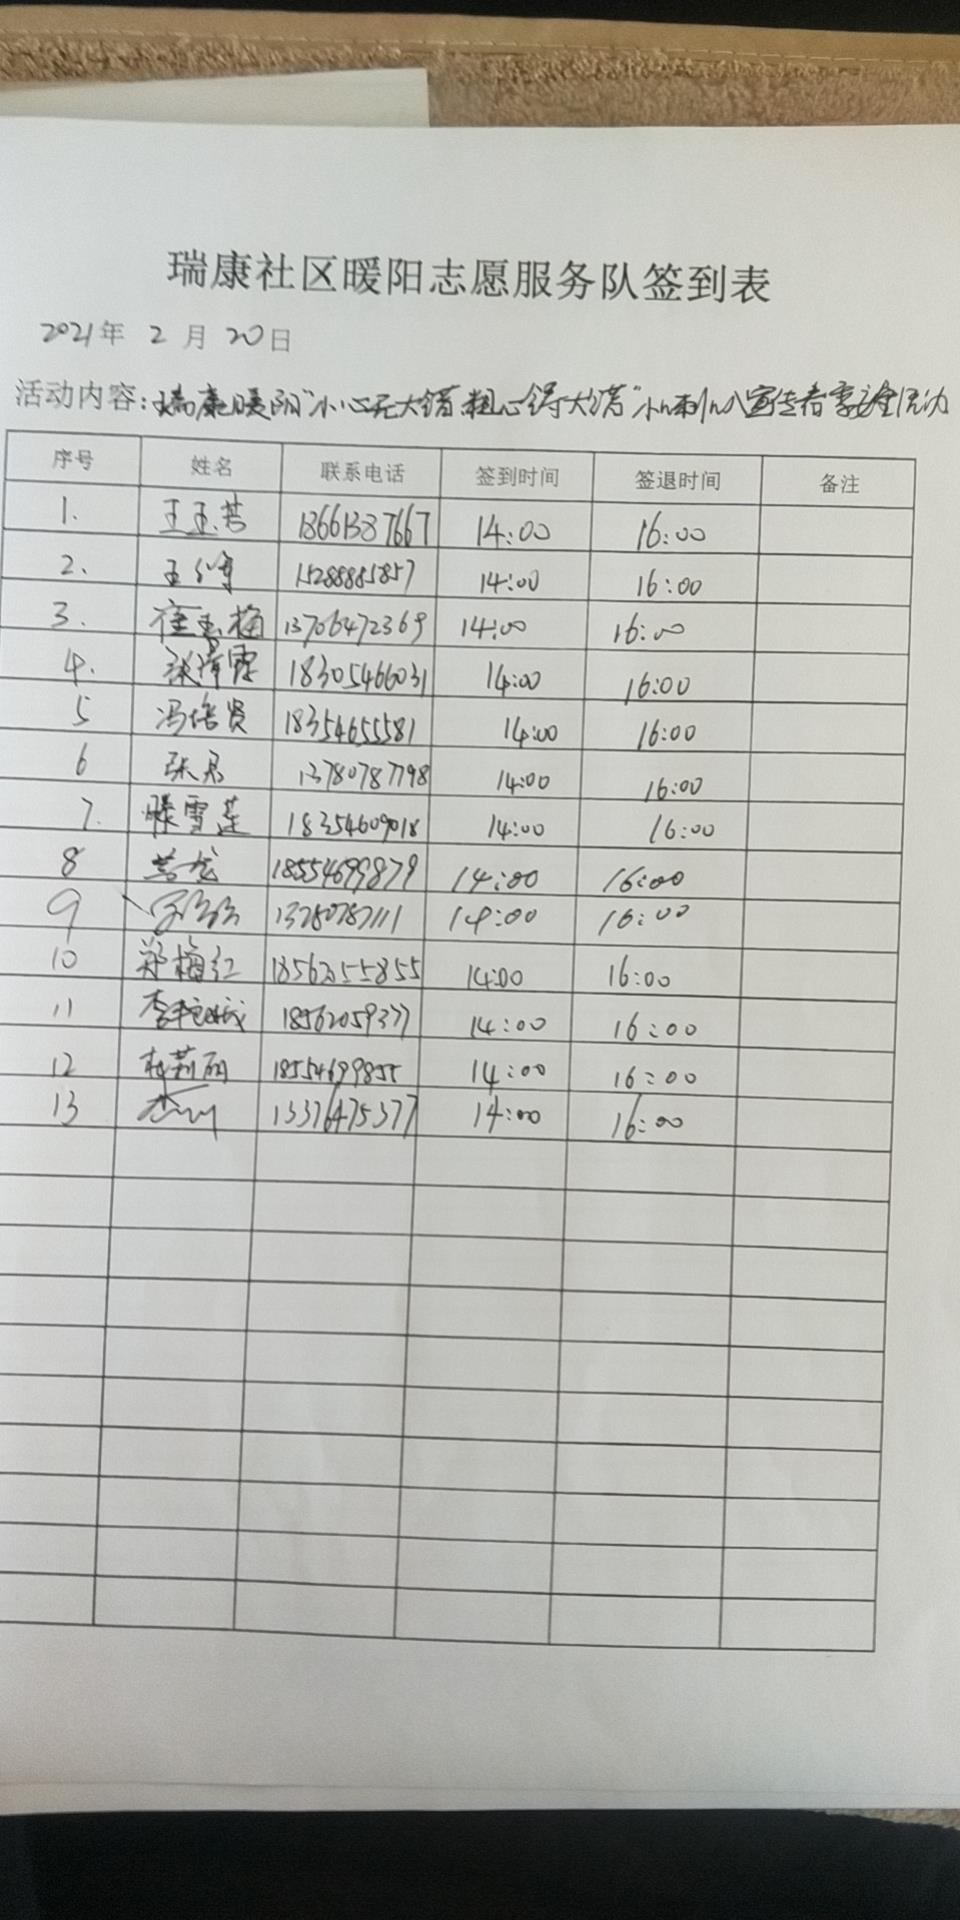 瑞康社区暖阳志愿服务队签到表
2021年 2 月 20日
活动内容:瑞康暖阳"小心无大错,粗心铸大错"小喇叭宣传春季安全活动
序号 姓名 联系电话 签到时间 签退时间 备注
1. 王玉芳 18661387667 14:00 16:00
2、 王峰 15288885857 14:00 16:00
3. 崔玉梅 13706472369 14:00 16:00
4. 霞 18305466031 14:00 16:00
5 冯培贤 18354655581 14:00 16:00
6 张君 13780787798 14:00 16:00
7. 滕雪莲 18354609018 14:00 16:00
8 18554699879 14:00 16:00
9 13780787111 14:00 16:00
10 郑梅红 18562055855 14:00 16:00
11 李艳城 18562059377 14:00 16:00
12 杜莉丽 18554699855 14:00 16:00
13 13376475377 14:00 16:00